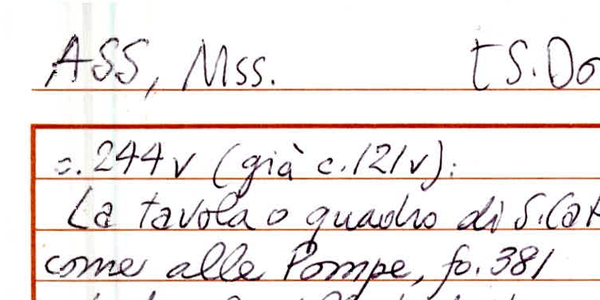 ASS, Mss. [S.Do
c. 244v (già c. 121v):
La tavola o quadro di S.Cat
come alle Pompe, fo. 381